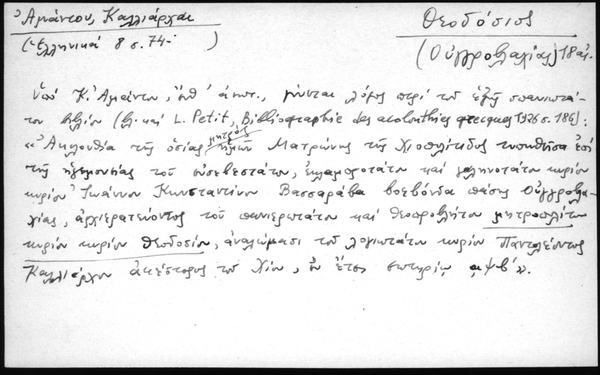 Ἀμάντου, Καλλιάρχαι
Θεοδόσιος
(Ἑλληνικά 8 σ. 74- )
(Οὐγγροβλαχίας) 18 αἰ.
Ὑπό Κ. Ἀμάντου, ἔνθ' ἀνωτ., γίνεται λόγος περί τοῦ ἑξῆς σπανιωτά-
του βιβλίου (βλ. καί L. Petit, Bibliographie des acolouthies grecques 1926 σ. 186):
«Ἀκολουθία τῆς ὁσίας μητρός ἡμῶν Ματρώνης τῆς Χιοπολίτιδος τυπωθεῖσα ἐπί
τῆς ἡγεμονίας τοῦ εὐσεβεστάτου, ἐκλαμπροτάτου καί γαληνοτάτου κυρίου
κυρίου Ἰωάννου Κωνσταντίνου Βασσαράβα βοεβόνδα πάσης Οὐγγροβλα-
χίας, ἀρχιερατεύοντος τοῦ πανιερωτάτου καί θεοπροβλήτου μητροπολίτου
κυρίου κυρίου Θεοδοσίου, ἀναλώμασι τοῦ λογιωτάτου κυρίου Παντολέοντος
Καλλιάρχου ἀκέστορος τοῦ Χίου, ἐν ἔτει σωτηρίῳ αψβ'».